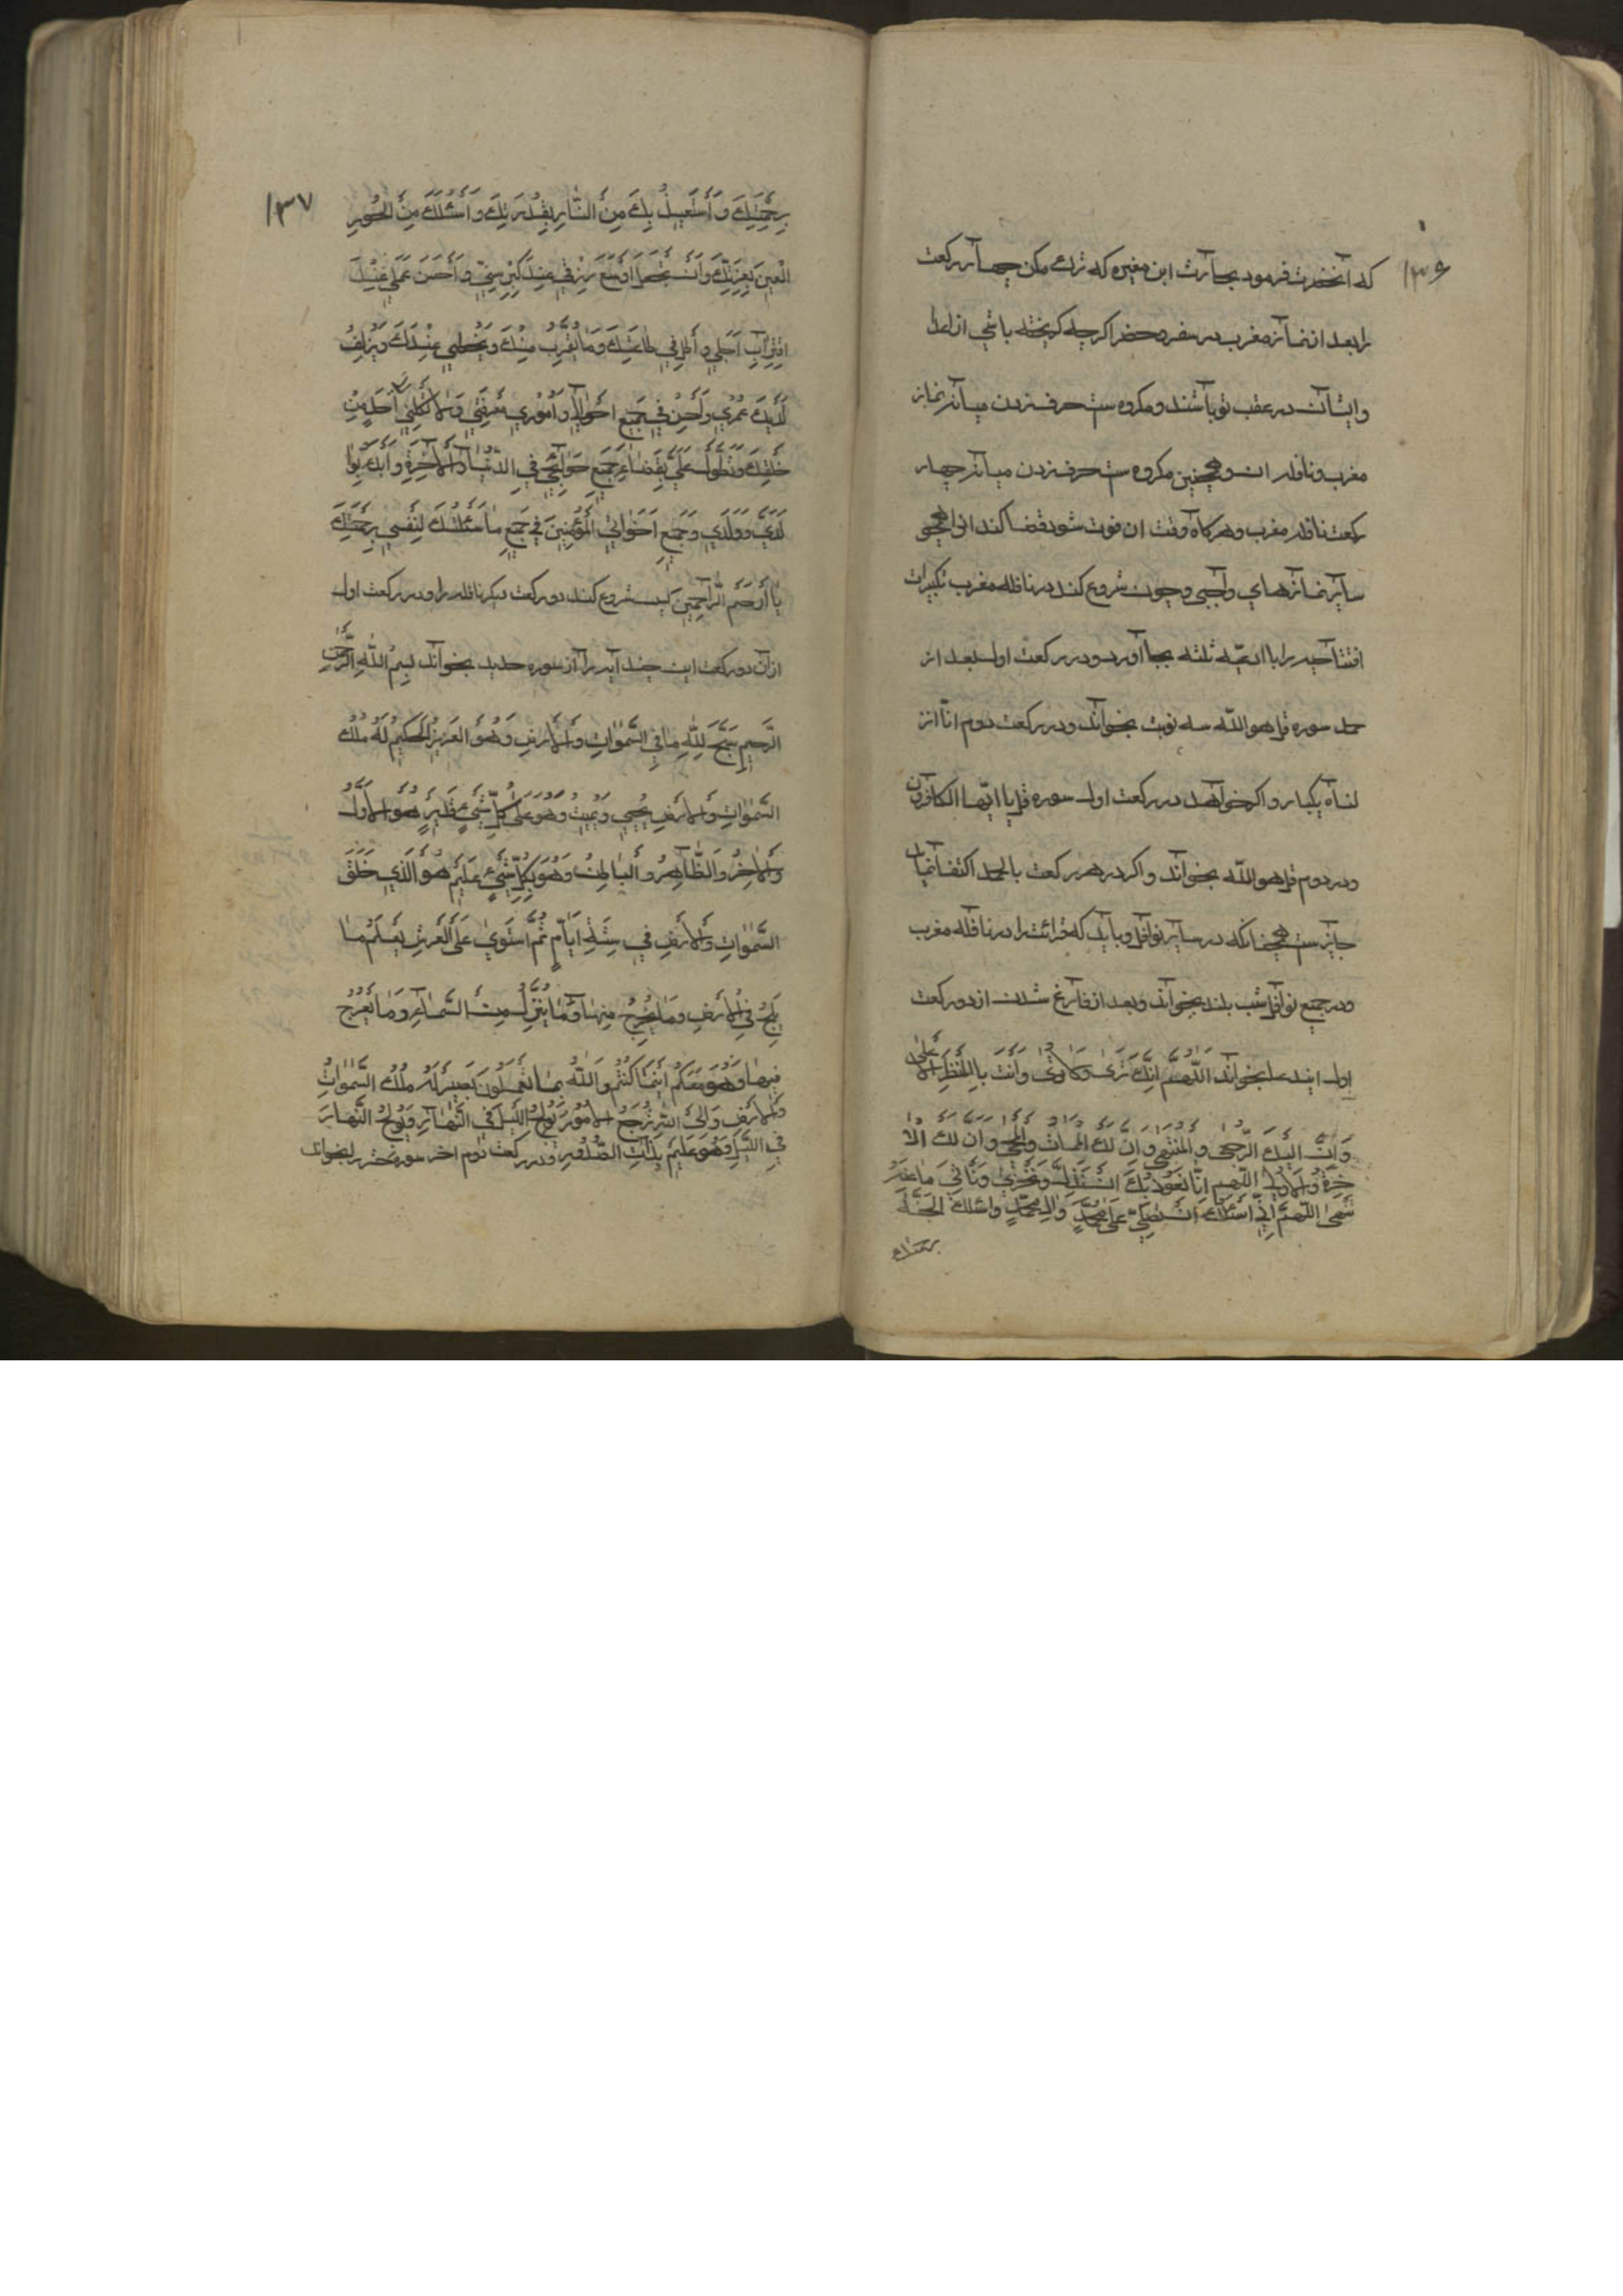 ۱۳۶
که آنحضرت فرمود بحارث ابن مغیره که ترک مکن چهار رکعت
را بعد از نماز مغرب در سفر و حضر اکرچه کریخته باشی از اعدا
و ایشان در عقب تو باشند و مکروه ست حرف زدن میانه نماز
مغرب و نافله ان و همچنین مکروه ست حرف زدن میانه چهار
رکعت نافله مغرب و هرکاه وقت ان فوت شود قضا کند انرا همچو
سایر نمازهای واجبی و چون شروع کند در نافله مغرب تکبیرات
افتتاحیه را با ادعیّه ثلثه بجا آورد و در رکعت اول بعد از
حمد سوره قل هو اللّه سه نوبت بخواند و در رکعت دوم انّا انز
لناه یکبار و اکر خواهد در رکعت اول سوره قل یا ایّها الکافرون
و در دوم قل هو اللّه بخواند و اکر در هر رکعت بالحمد اکتفا نماید
جایز ست همچنانکه در سایر نوافل و باید که قرائت را در نافله مغرب
و در جمیع نوافل شب بلند بخواند و بعد از فارغ شدن از دو رکعت
اول ایندعا بخواند اَللّهُمَّ اِنَّكَ تَرٰى وَلاتُرٰى وَاَنْتَ بِالْمَنْظَرِ الاَعْلىٰ
وَاِنَّ اِلَيْكَ الرُّجْعىٰ وَالْمُنْتَهىٰ وَاِنَّ لَكَ الْمَمٰاتَ وَالْمَحْيٰ وَاِنَّ لَكَ الْا
خِرَةَ وَالاُولىٰ اللّهم اِنّا نَعُوذُ بِكَ اَنْ نَذِلَّ وَنَخْزىٰ وَنَأْتِيَ مٰا عَنْهُ
نَنْهىٰ اللّهمّ اِنِّي اَسْئَلُكَ اَنْ تُصَلِّيَ عَلىٰ مُحَمَّدٍ وَالِ مُحَمَّدٍ وَاَسْئَلُكَ الْجَنَّةَ
برحمتك
۱۳۷
بِرَحْمَتِكَ وَاَسْتَعِيذُ بِكَ مِنَ النّٰارِ بِقُدْرَتِكَ وَاَسْئَلُكَ مِنَ الْحُورِ
الْعِينِ بِعِزَّتِكَ وَاَنْ تَجْعَلَ اَوْسَعَ رِزْقِي عِنْدَ كِبَرِ سِنِّي وَاَحْسَنَ عَمَلِي عِنْدَ
اقْتِرٰابِ اَجَلِي وَاَطِلْ فِي طٰاعَتِكَ وَمٰا يُقَرِّبُ مِنْكَ وَيُحْظِي عِنْدَكَ وَيُزْلِفُ
لَدَيْكَ عُمْرِي وَاَحْسِنْ فِي جَمِيعِ اَحْوٰالِي وَاُمُورِي مَعْرِفَتِي وَلا تَكِلْنِي اِلىٰ اَحَدٍ مِنْ
خَلْقِكَ وَتَطَوَّلْ عَلَيَّ بِقَضٰاءِ جَمِيعِ حَوٰائِجِي فِي الدُّنْيٰا وَالاٰخِرَةِ وَابْدَءْ بِوٰا
لِدَيَّ وَوَلَدِي وَجَمِيعِ اِخْوٰانِي الْمُؤْمِنِينَ فِي جَمِيعِ مٰا سَئَلْتُكَ لِنَفْسِي بِرَحْمَتِكَ
يٰا اَرْحَمَ الرّٰاحِمِينَ پس شروع کند دو رکعت دیکر نافله را و در رکعت اول
از ان دو رکعت این چند آیه را از سوره حدید بخواند بِسْمِ اللّهِ الرَّحْمٰنِ
الرَّحِيمِ سَبَّحَ لِلّهِ مٰا فِي السَّمٰوٰاتِ وَالاَرْضِ وَهُوَ الْعَزِيزُ الْحَكِيمُ لَهُ مُلْكُ
السَّمٰوٰاتِ وَالاَرْضِ يُحْيِي وَيُمِيتُ وَهُوَ عَلىٰ كُلِّ شَيْءٍ قَدِيرٌ هُوَ الاَوَّلُ
وَالاٰخِرُ وَالظّٰاهِرُ وَالْبٰاطِنُ وَهُوَ بِكُلِّ شَيْءٍ عَلِيمٌ هُوَ الَّذِي خَلَقَ
السَّمٰوٰاتِ وَالاَرْضَ فِي سِتَّةِ اَيّٰامٍ ثُمَّ اسْتَوىٰ عَلَى الْعَرْشِ يَعْلَمُ مٰا
يَلِجُ فِي الاَرْضِ وَمٰا يَخْرُجُ مِنْهٰا وَمٰا يَنْزِلُ مِنَ السَّمٰاءِ وَمٰا يَعْرُجُ
فِيهٰا وَهُوَ مَعَكُمْ اَيْنَمٰا كُنْتُمْ وَاللّهُ بِمٰا تَعْمَلُونَ بَصِيرٌ لَهُ مُلْكُ السَّمٰوٰاتِ
وَالاَرْضِ وَاِلَى اللّهِ تُرْجَعُ الاُمُورُ يُولِجُ اللَّيْلَ فِي النَّهٰارِ وَيُولِجُ النَّهٰارَ
فِي اللَّيْلِ وَهُوَ عَلِيمٌ بِذٰاتِ الصُّدُورِ و در رکعت دوم اخر سوره حشر بخواند